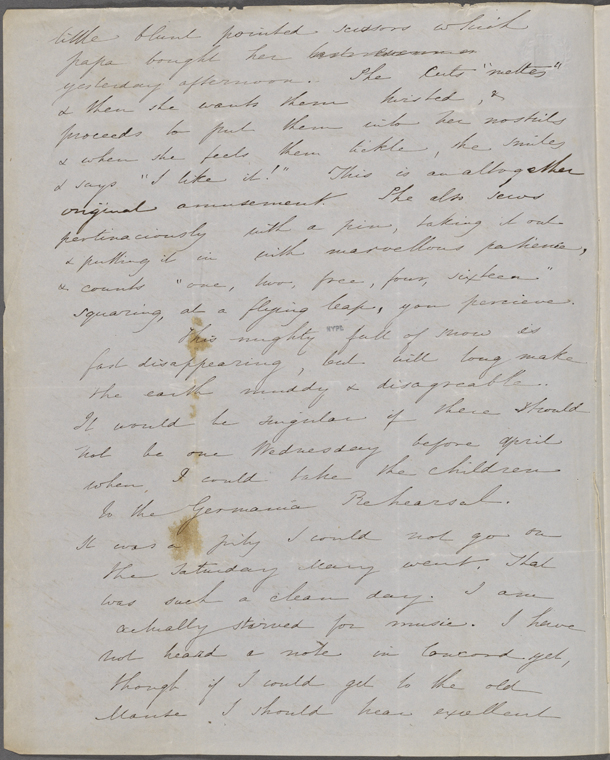 little blunt pointed scissors which
papa bought her
yesterday afternoon. She cuts "nettes"
& then she wants them twisted, &
proceeds to put them into her nostrils
& when she feels them tickle, she smiles
& says "I like it!" This is an altogether
original amusement. She also sews
pertinaciously with a pin, taking it out
& putting it in with marvellous patience,
& counts "one, two, free, four, sixteen"
squaring, at a flying leap, you percieve.
This mighty full of snow is
fast disappearing, but will long make
the earth muddy & disagreable.
It would be singular if there should
not be one Wednesday before April
when I could take the children
to the Germania Rehearsal.
It was a pity I could not go on
the Saturday Mary went. That
was such a clean day. I am
actually starved for music. I have
not heard a note in Concord yet,
though if I could get to the old
Manse I should hear excellent